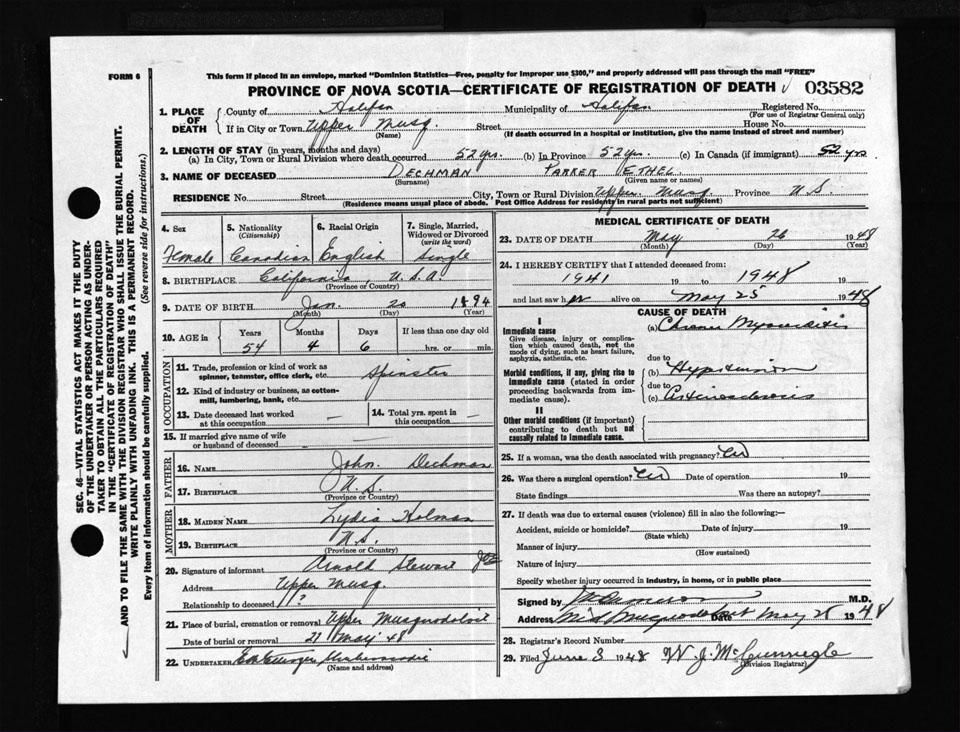 FORM 6
This form if placed in an envelope, marked "Dominion Statistics—Free, penalty for improper use $300," and properly addressed will pass through the mail "FREE"
PROVINCE OF NOVA SCOTIA—CERTIFICATE OF REGISTRATION OF DEATH 03582
1. PLACE OF DEATH County of Halifax Municipality of Halifax Registered No.
(For use of Registrar General only)
If in City or Town Upper Musq. Street House No.
(Name) (If death occurred in a hospital or institution, give the name instead of street and number)
2. LENGTH OF STAY (in years, months and days)
(a) In City, Town or Rural Division where death occurred 52 yrs. (b) In Province 52 yrs. (c) In Canada (if immigrant) 52 yrs
3. NAME OF DECEASED DECHMAN PARKER ETHEL
(Surname) (Given name or names)
RESIDENCE No. Street City, Town or Rural Division Upper Musq. Province N.S.
(Residence means usual place of abode. Post Office Address for residents in rural parts not sufficient)
4. Sex 5. Nationality (Citizenship) 6. Racial Origin 7. Single, Married, Widowed or Divorced (write the word)
Female Canadian English Single
8. BIRTHPLACE California, U.S.A.
(Province or Country)
9. DATE OF BIRTH Jan. 20 1894
(Month) (Day) (Year)
10. AGE in Years Months Days If less than one day old
54 4 6 hrs. or min.
OCCUPATION
11. Trade, profession or kind of work as spinner, teamster, office clerk, etc. Spinster
12. Kind of industry or business, as cotton-mill, lumbering, bank, etc.
13. Date deceased last worked at this occupation — 14. Total yrs. spent in this occupation —
15. If married give name of wife or husband of deceased —
FATHER
16. NAME John Dechman
17. BIRTHPLACE N.S.
(Province or Country)
MOTHER
18. MAIDEN NAME Lydia Holman
19. BIRTHPLACE N.S.
(Province or Country)
20. Signature of informant Arnold Stewart
Address Upper Musq.
Relationship to deceased ?
21. Place of burial, cremation or removal Upper Musquodoboit
Date of burial or removal 27 May '48
22. UNDERTAKER
(Name and address)
MEDICAL CERTIFICATE OF DEATH
23. DATE OF DEATH May 26 1948
(Month) (Day) (Year)
24. I HEREBY CERTIFY that I attended deceased from:
1941 19 to 1948 19
and last saw her alive on May 25 1948
CAUSE OF DEATH
I
Immediate cause
Give disease, injury or complication which caused death, not the mode of dying, such as heart failure, asphyxia, asthenia, etc.
(a) Chronic Myocarditis
due to
Morbid conditions, if any, giving rise to immediate cause (stated in order proceeding backwards from immediate cause).
(b) Hypertension
due to
(c) Arteriosclerosis
II
Other morbid conditions (if important) contributing to death but not causally related to immediate cause.
25. If a woman, was the death associated with pregnancy?
26. Was there a surgical operation? Date of operation 19
State findings Was there an autopsy?
27. If death was due to external causes (violence) fill in also the following:—
Accident, suicide or homicide? Date of injury 19
(State which)
Manner of injury
(How sustained)
Nature of injury
Specify whether injury occurred in industry, in home, or in public place
Signed by M.D.
Address Mid Musquodoboit Date May 28 1948
28. Registrar's Record Number
29. Filed June 3 1948 W. J. McCunnigle
(Division Registrar)
SEC. 46—VITAL STATISTICS ACT MAKES IT THE DUTY
OF THE UNDERTAKER OR PERSON ACTING AS UNDER-
TAKER TO OBTAIN ALL THE PARTICULARS REQUIRED
IN THE "CERTIFICATE OF REGISTRATION OF DEATH"
AND TO FILE THE SAME WITH THE DIVISION REGISTRAR WHO SHALL ISSUE THE BURIAL PERMIT.
WRITE PLAINLY WITH UNFADING INK. THIS IS A PERMANENT RECORD.
Every item of information should be carefully supplied. (See reverse side for instructions.)